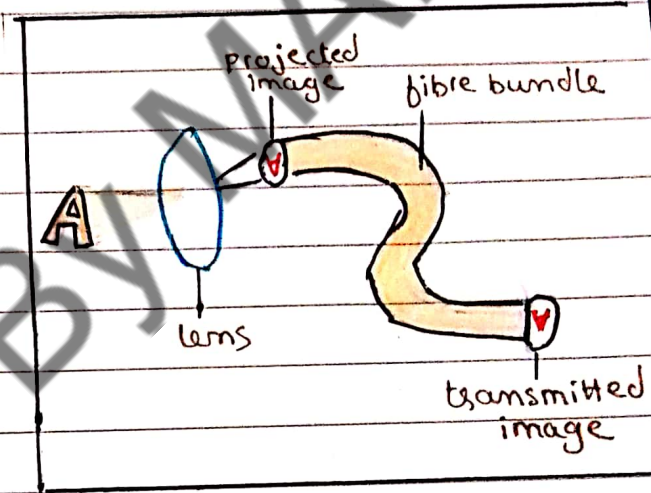 projected
image
fibre bundle
A
A
lens
A
transmitted
image
BY MA